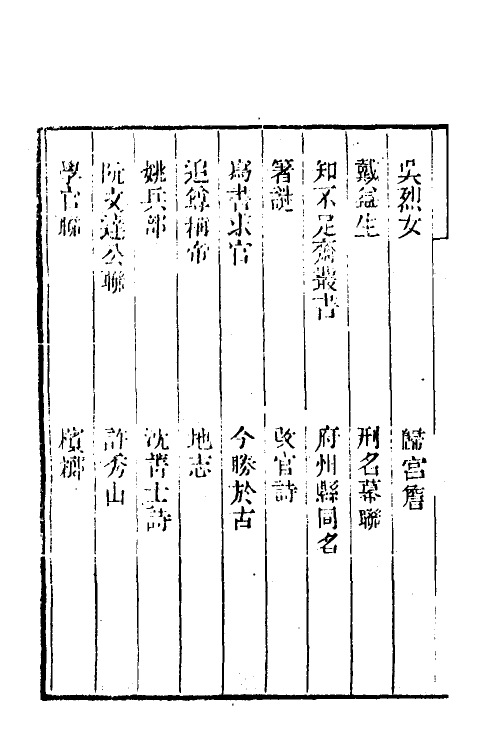 吳烈女　歸宮詹
戴益生　刑名幕聯
知不足齋叢書　府州縣同名
箸謎　改官詩
寫書求官　今勝於古
追尊稱帝　地志
姚兵部　沈菁士詩
阮文達公聯　許秀山
學官聯　檳榔